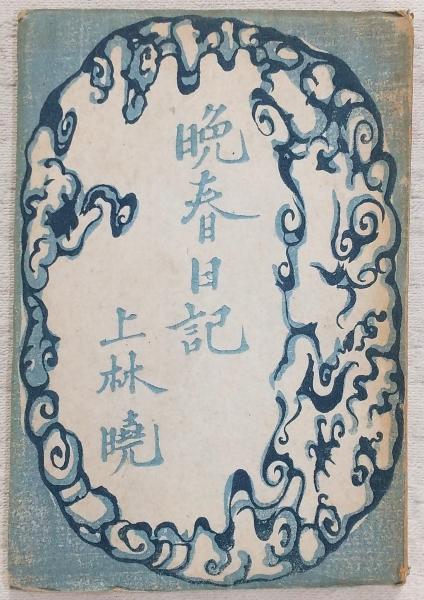 晩春日記
上林曉